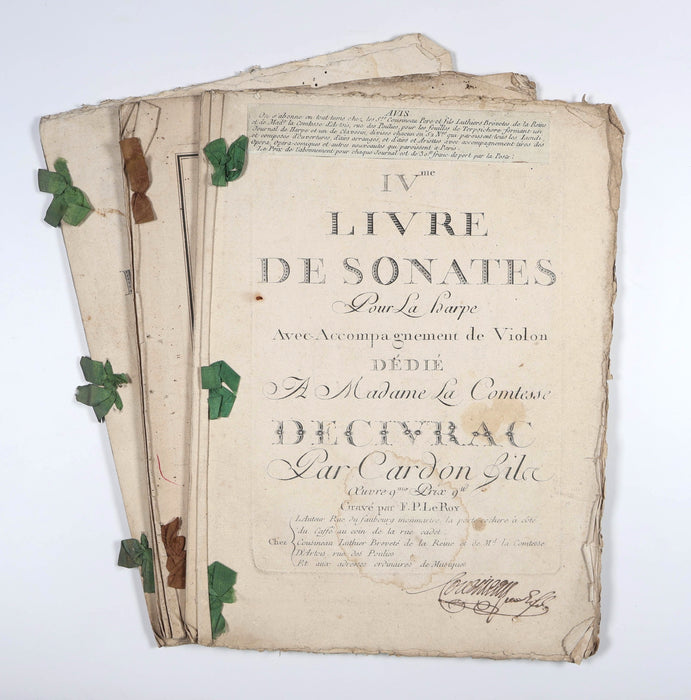 AVIS
On s'abonne en tout tems chez les Srs. Cousineau Pere et fils Luthiers Brevetés de la Reine
et de Made. la Comtesse d'Artois, rue des Poulies, pour les feuilles de Terpsichore, formant un
Journal de Harpe et un de Clavecin, divisés chacun en 52 Nos. qui paroissent tous les Lundi,
et composés d'Ouvertures, d'airs arrangés, et d'airs et Ariettes avec accompagnement tirés des
Opera, Opera-comiques et autres nouveautés qui paroissent à Paris.
Le Prix de l'abonnement pour chaque Journal est de 30 tt franc de port par la Poste.
IVme
LIVRE
DE SONATES
Pour La harpe
Avec Accompagnement de Violon
DÉDIÉ
A Madame La Comtesse
DECIVRAC
Par Cardon fils
Œuvre 9me Prix 9tt
Gravé par F. P. Le Roy
L'Auteur Rue du faubourg monmartre, la porte cochere à côté
du Caffé au coin de la rue cadet.
Chez Cousineau Luthier Breveté de la Reine et de Md. la Comtesse
D'Artois, rue des Poulies
Et aux adresses ordinaires de Musique
Cousineau